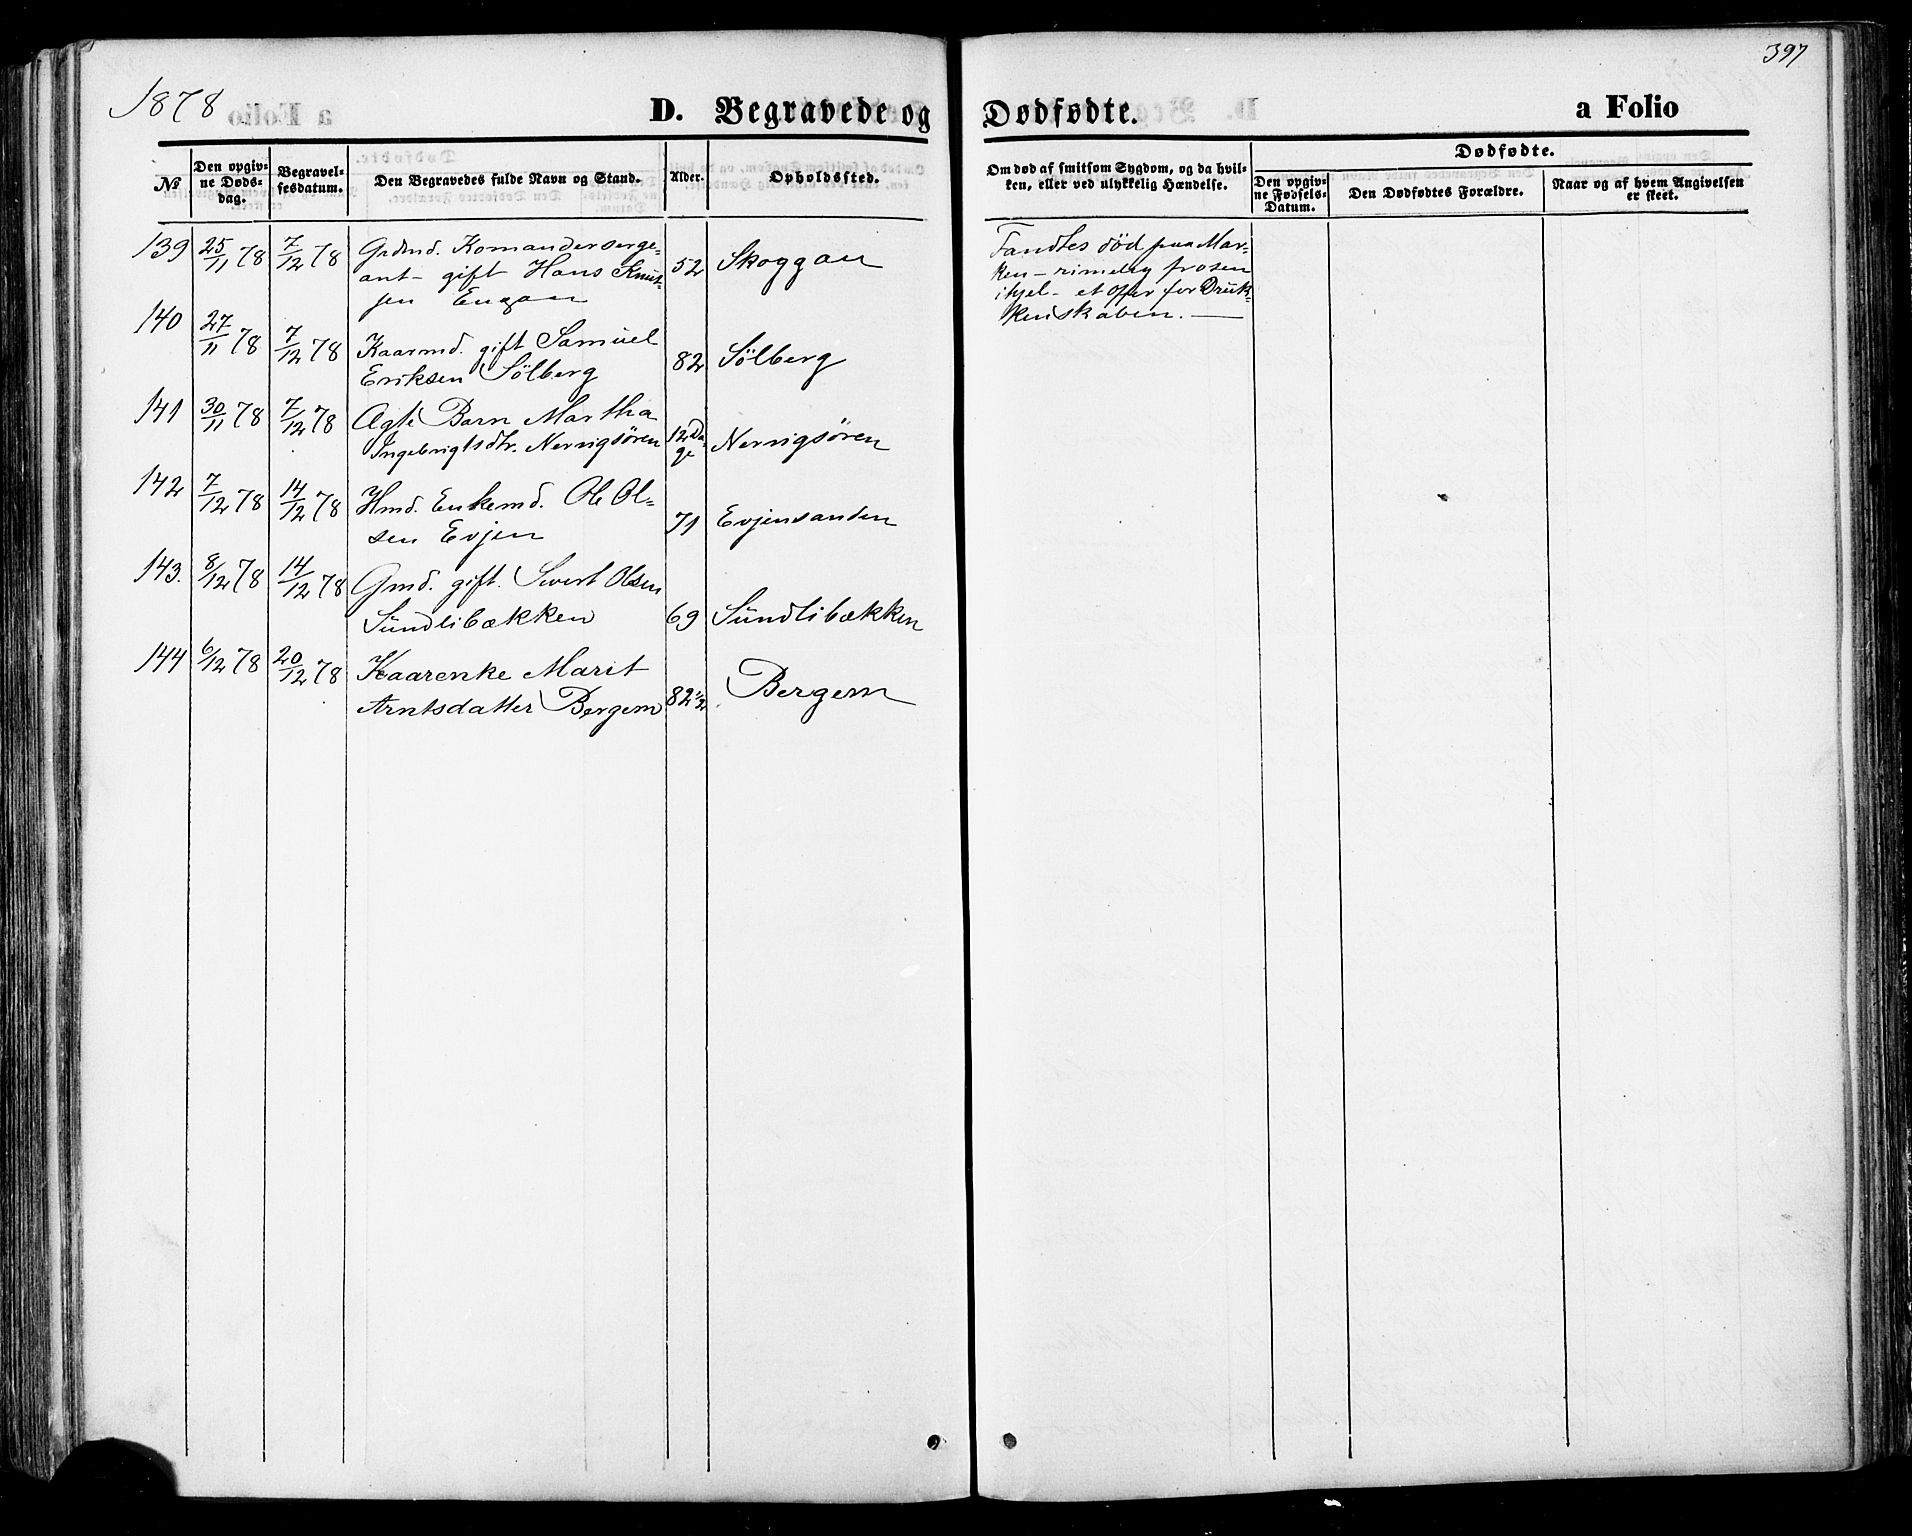 397
1878 D. Begravede og Dødfødte. a Folio
№ Den opgivne Dødsdag. Begravelsesdatum. Den Begravedes fulde Navn og Stand. Alder. Opholdssted. Om død af smitsom Sygdom, og da hvilken, eller ved ulykkelig Hændelse. Dødfødte. Den opgivne Fødsels-Datum. Den Dødfødtes Forældre. Naar og af hvem Angivelsen er skeet.
139 25/11 78 7/12 78 Grdmd. Komandersergeant gift Hans Knutsen Engan 52 Skoggan Fandtes død paa Marken - rimelig frosen ihjel - et offer for Drukkenskaben. —
140 27/11 78 7/12 78 Kaarmd. gift Samuel
Eriksen Sölberg 82 Sölberg
141 30/11 78 7/12 78 Ægte Barn Martha
Ingebrigtsdtr. Nervigsören 12 Dage Nervigsören
142 7/12 78 14/12 78 Hmd. Enkemd. Ole Ol-
sen Evjen 71 Evjensanden
143. 8/12 78 14/12 78 Gmd. gift. Sivert Olsen
Sündlibækken 69 Sündlibækken
144 6/12 78 20/12 78 Kaarenke Marit
Arntsdatter Bergem 82 1/2 Bergem